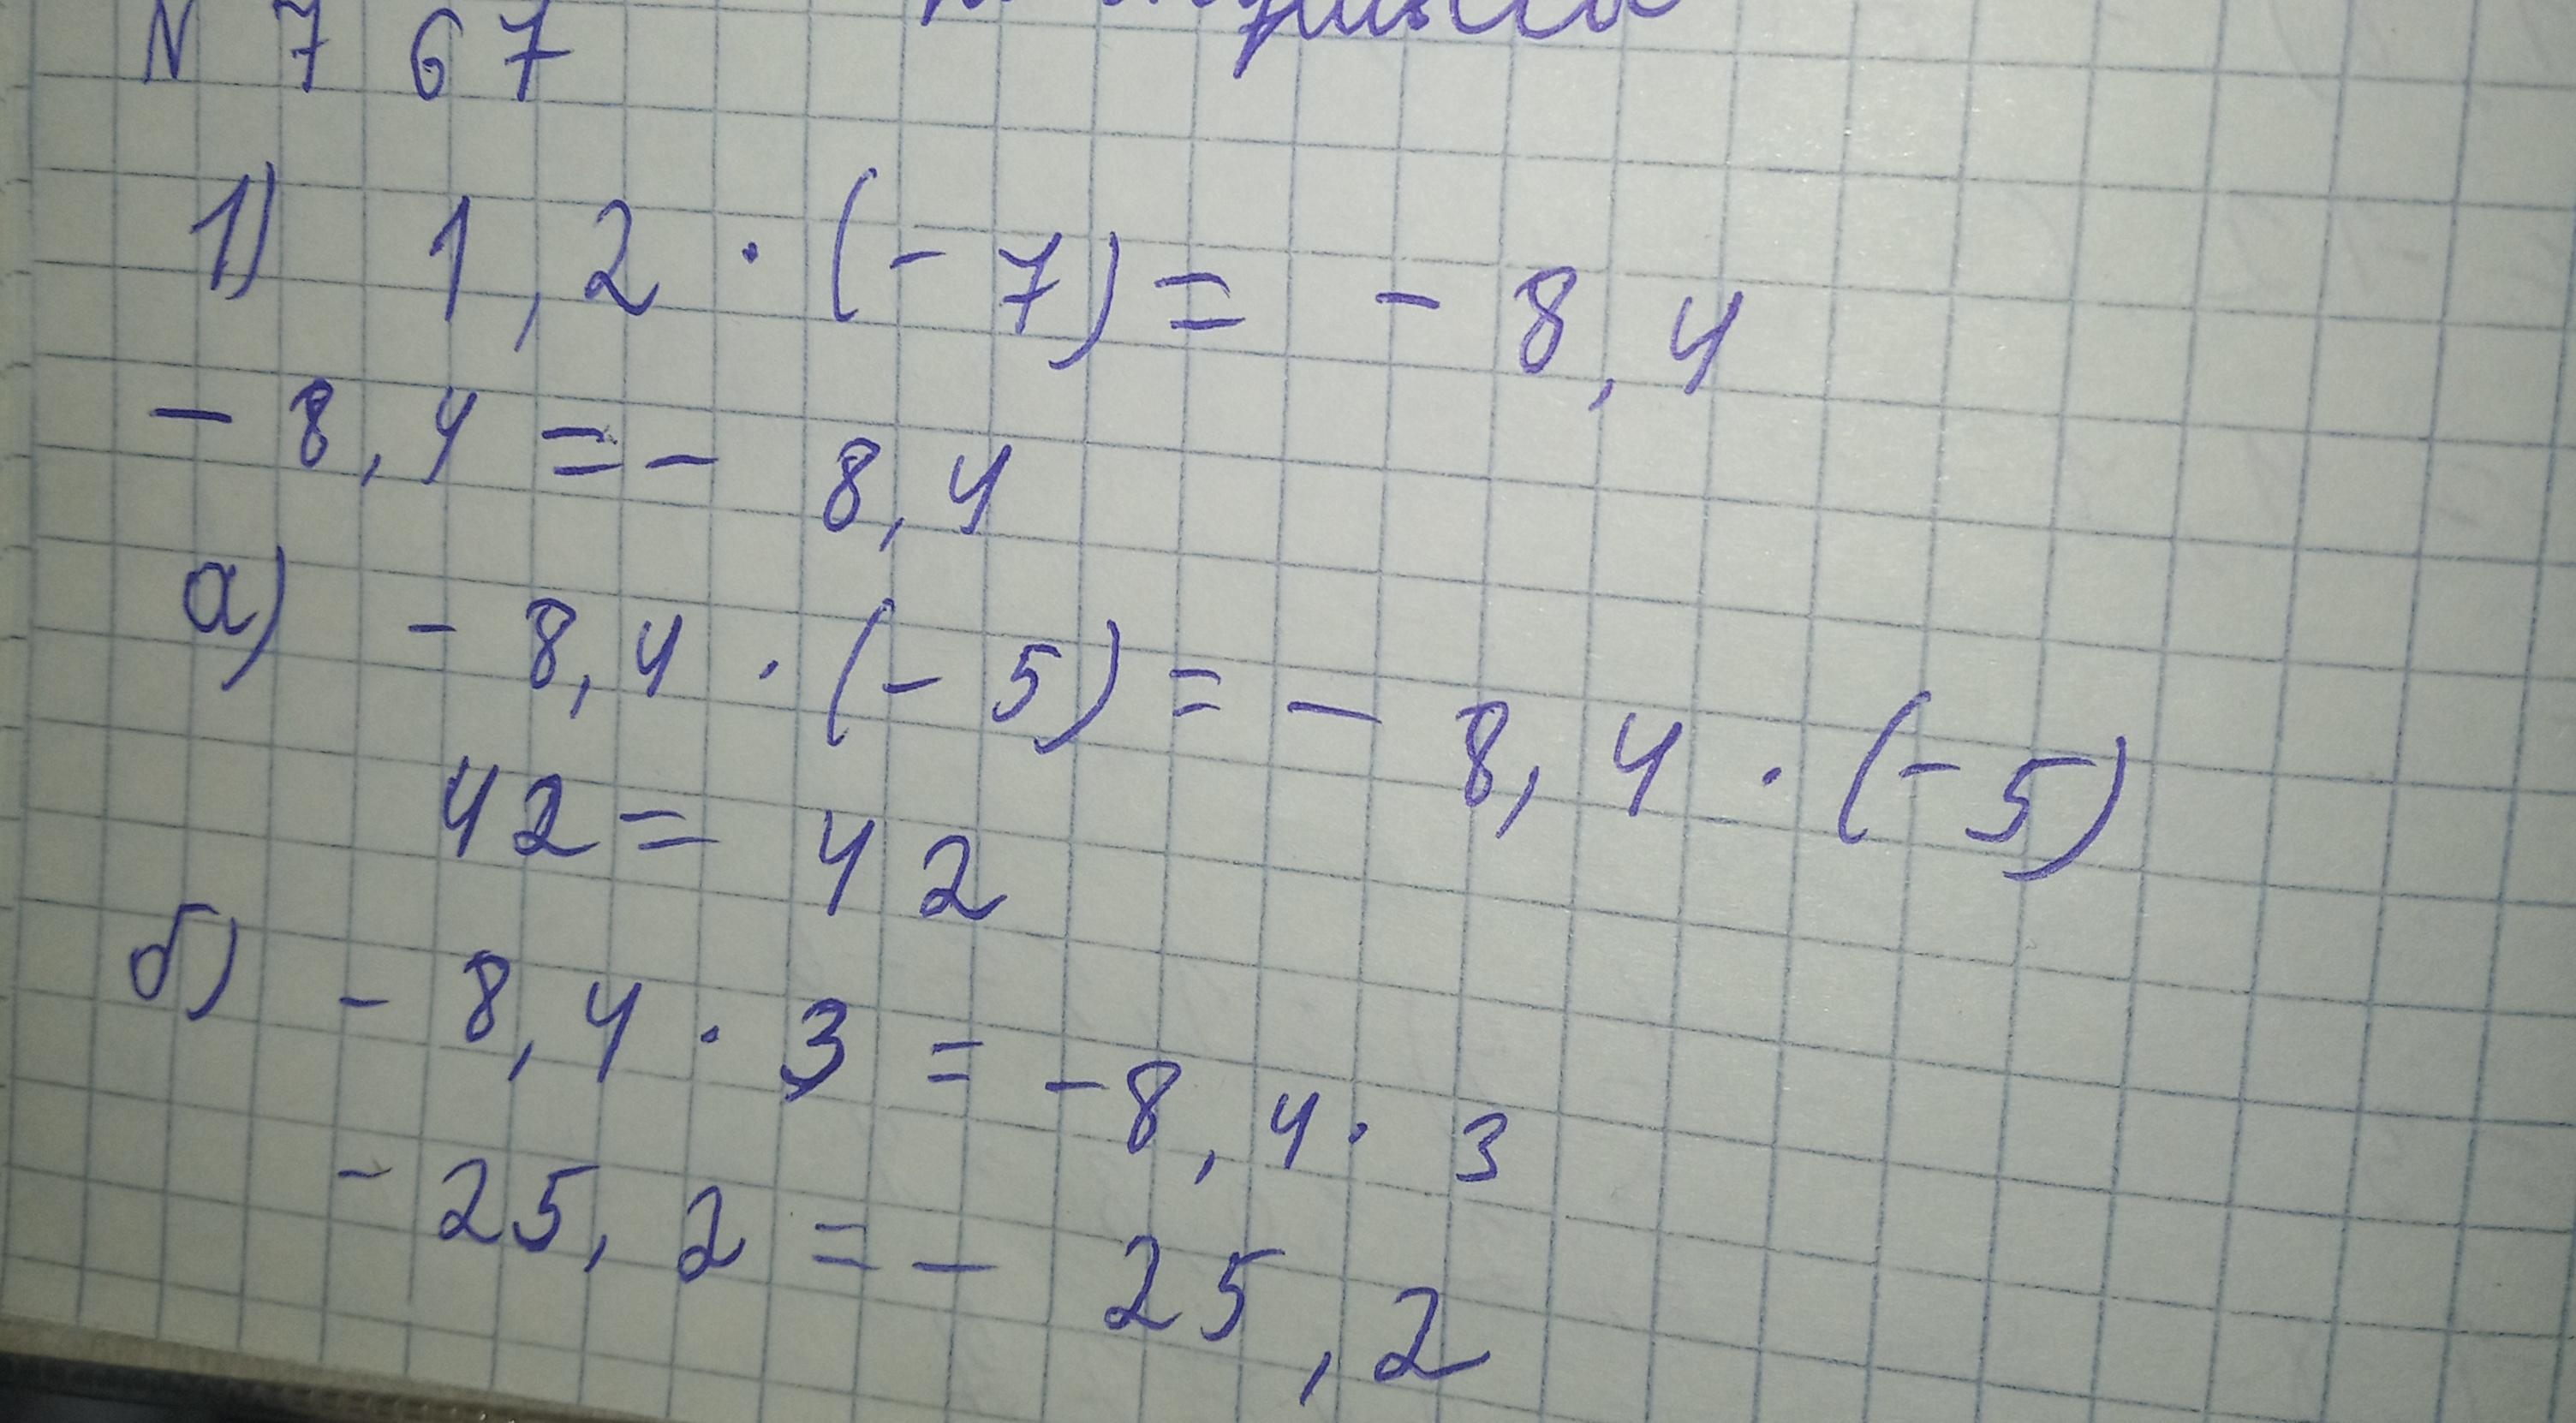 N 767
1) 1,2 · (-7) = - 8,4
- 8,4 = - 8,4
а) - 8,4 · (- 5) = - 8,4 · (- 5)
42 = 42
б) - 8,4 · 3 = - 8,4 · 3
- 25,2 = - 25,2